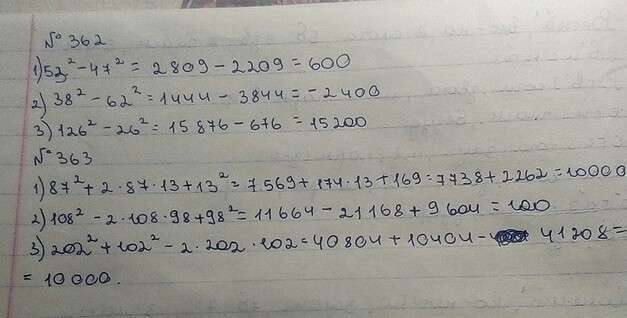 № 362
1) 53² - 47² = 2809 - 2209 = 600
2) 38² - 62² = 1444 - 3844 = - 2400
3) 126² - 26² = 15876 - 676 = 15200
№ 363
1) 87² + 2 · 87 · 13 + 13² = 7569 + 174 · 13 + 169 = 7738 + 2262 = 10000
2) 108² - 2 · 108 · 98 + 98² = 11664 - 21168 + 9604 = 100.
3) 202² + 102² - 2 · 202 · 102 = 40804 + 10404 - 41208 =
= 10000.